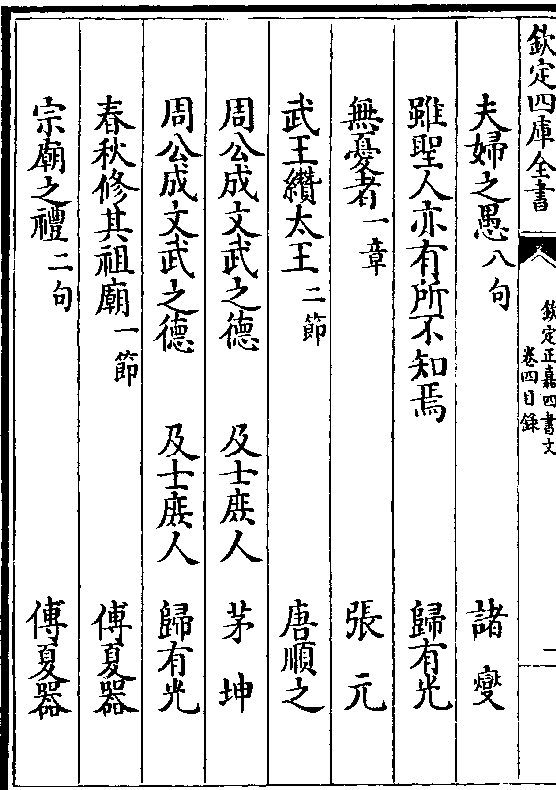 欽定四庫全書
欽定正嘉四書文
卷四目錄
一
夫婦之愚 八句 諸燮
雖聖人亦有所不知焉 歸有光
無憂者 一章 張元
武王纘太王 二節 唐順之
周公成文武之德 及士庶人 茅坤
周公成文武之德 及士庶人 歸有光
春秋修其祖廟 一節 傅夏器
宗廟之禮 二句 傅夏器